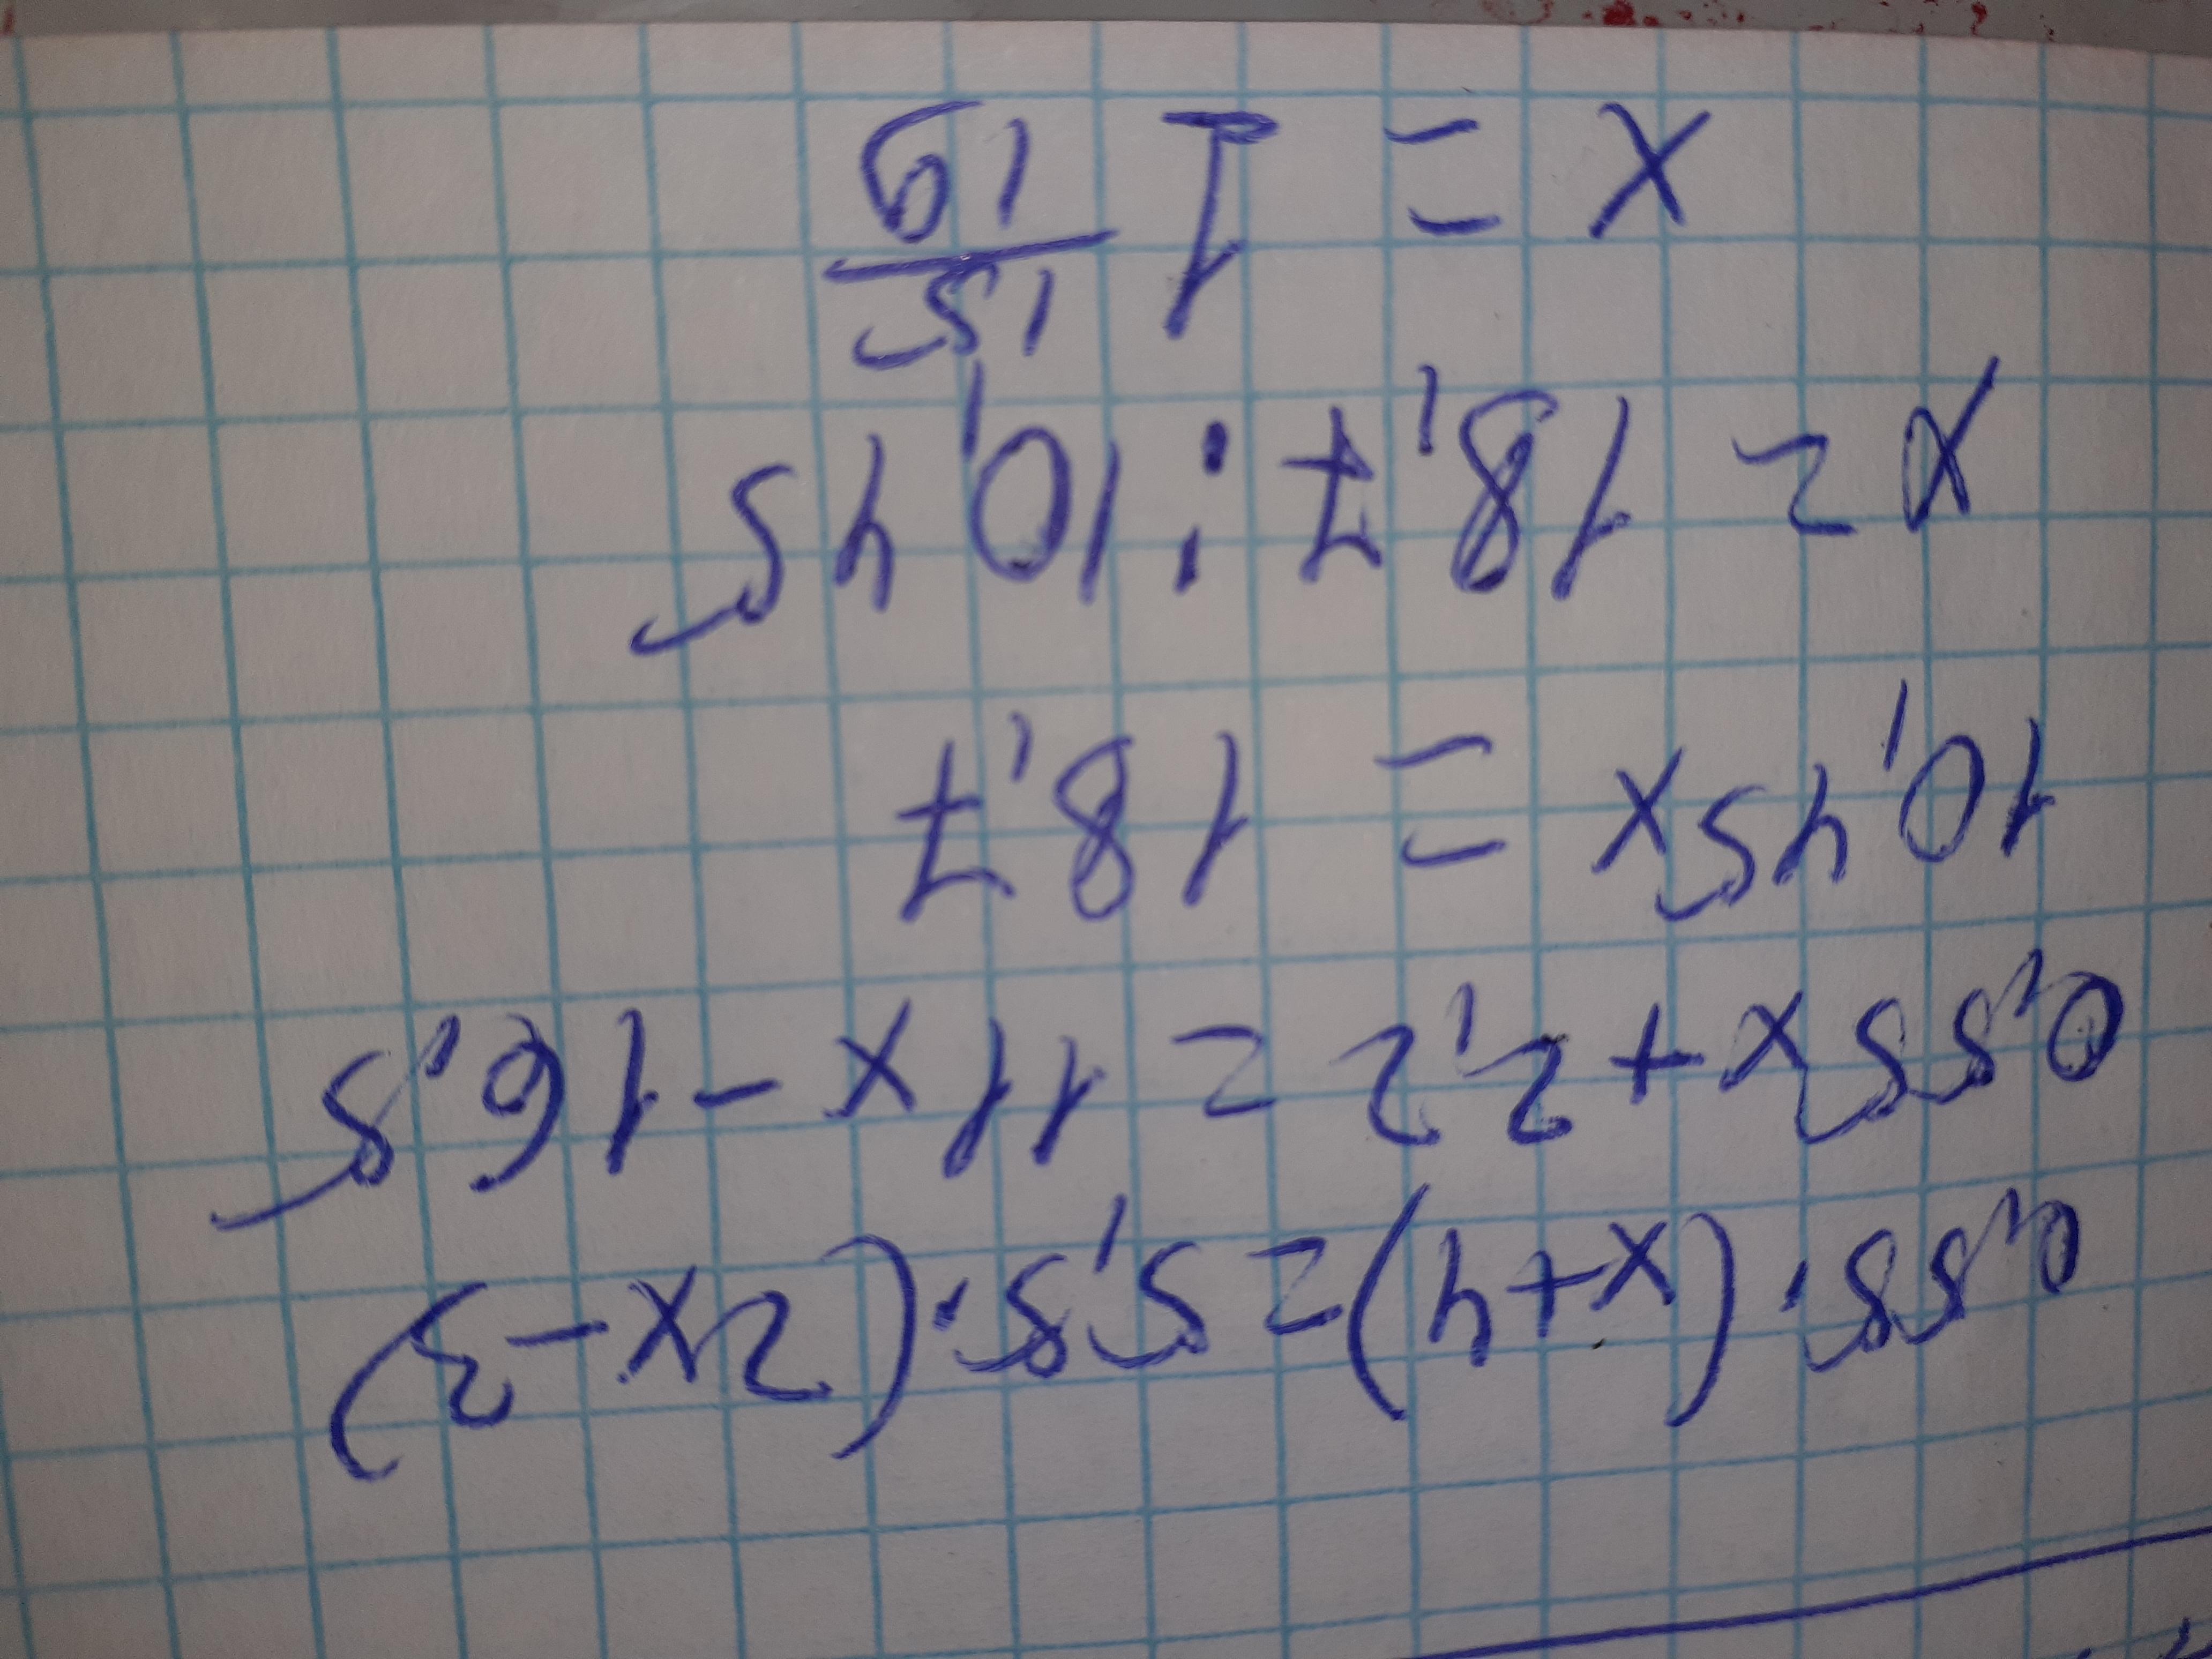 0,55·(x+4)=5,5·(2x-3)
0,55x+2,2=11x-16,5
10,45x=18,7
x=18,7:10,45
x=1 15/19